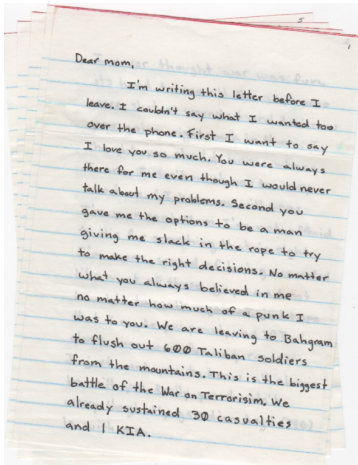 5
1
Dear mom,
I'm writing this letter before I
leave. I couldn't say what I wanted too
over the phone. First I want to say
I love you so much. You were always
there for me even though I would never
talk about my problems. Second you
gave me the options to be a man
giving me slack in the rope to try
to make the right decisions. No matter
what you always believed in me
no matter how much of a punk I
was to you. We are leaving to Bahgram
to flush out 600 Taliban soldiers
from the mountains. This is the biggest
battle of the War on Terrorisim. We
already sustained 30 casualties
and 1 KIA.